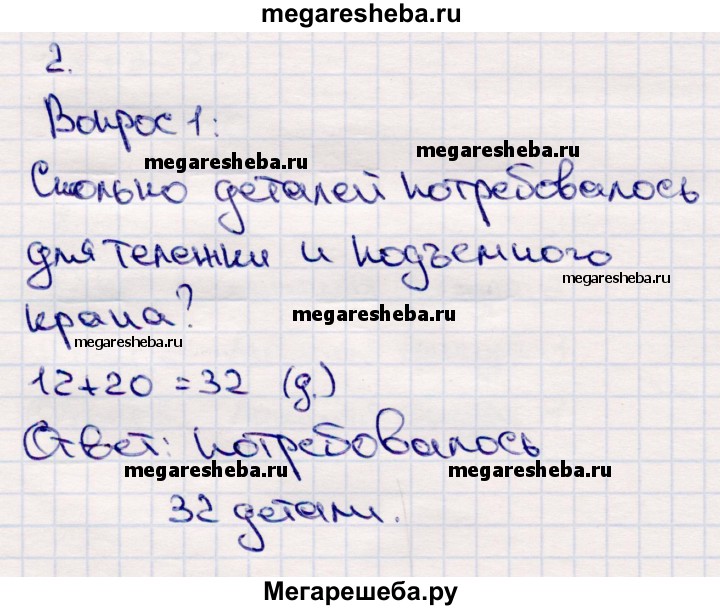 megaresheba.ru
2.
Вопрос 1:
megaresheba.ru
megaresheba.ru
Сколько деталей потребовалось
для тележки и подъемного
megaresheba.ru
крана?
megaresheba.ru
megaresheba.ru
12+20 = 32 (д.)
Ответ: потребовалось
megaresheba.ru
megaresheba.ru
32 детали.
Мегарешеба.ру